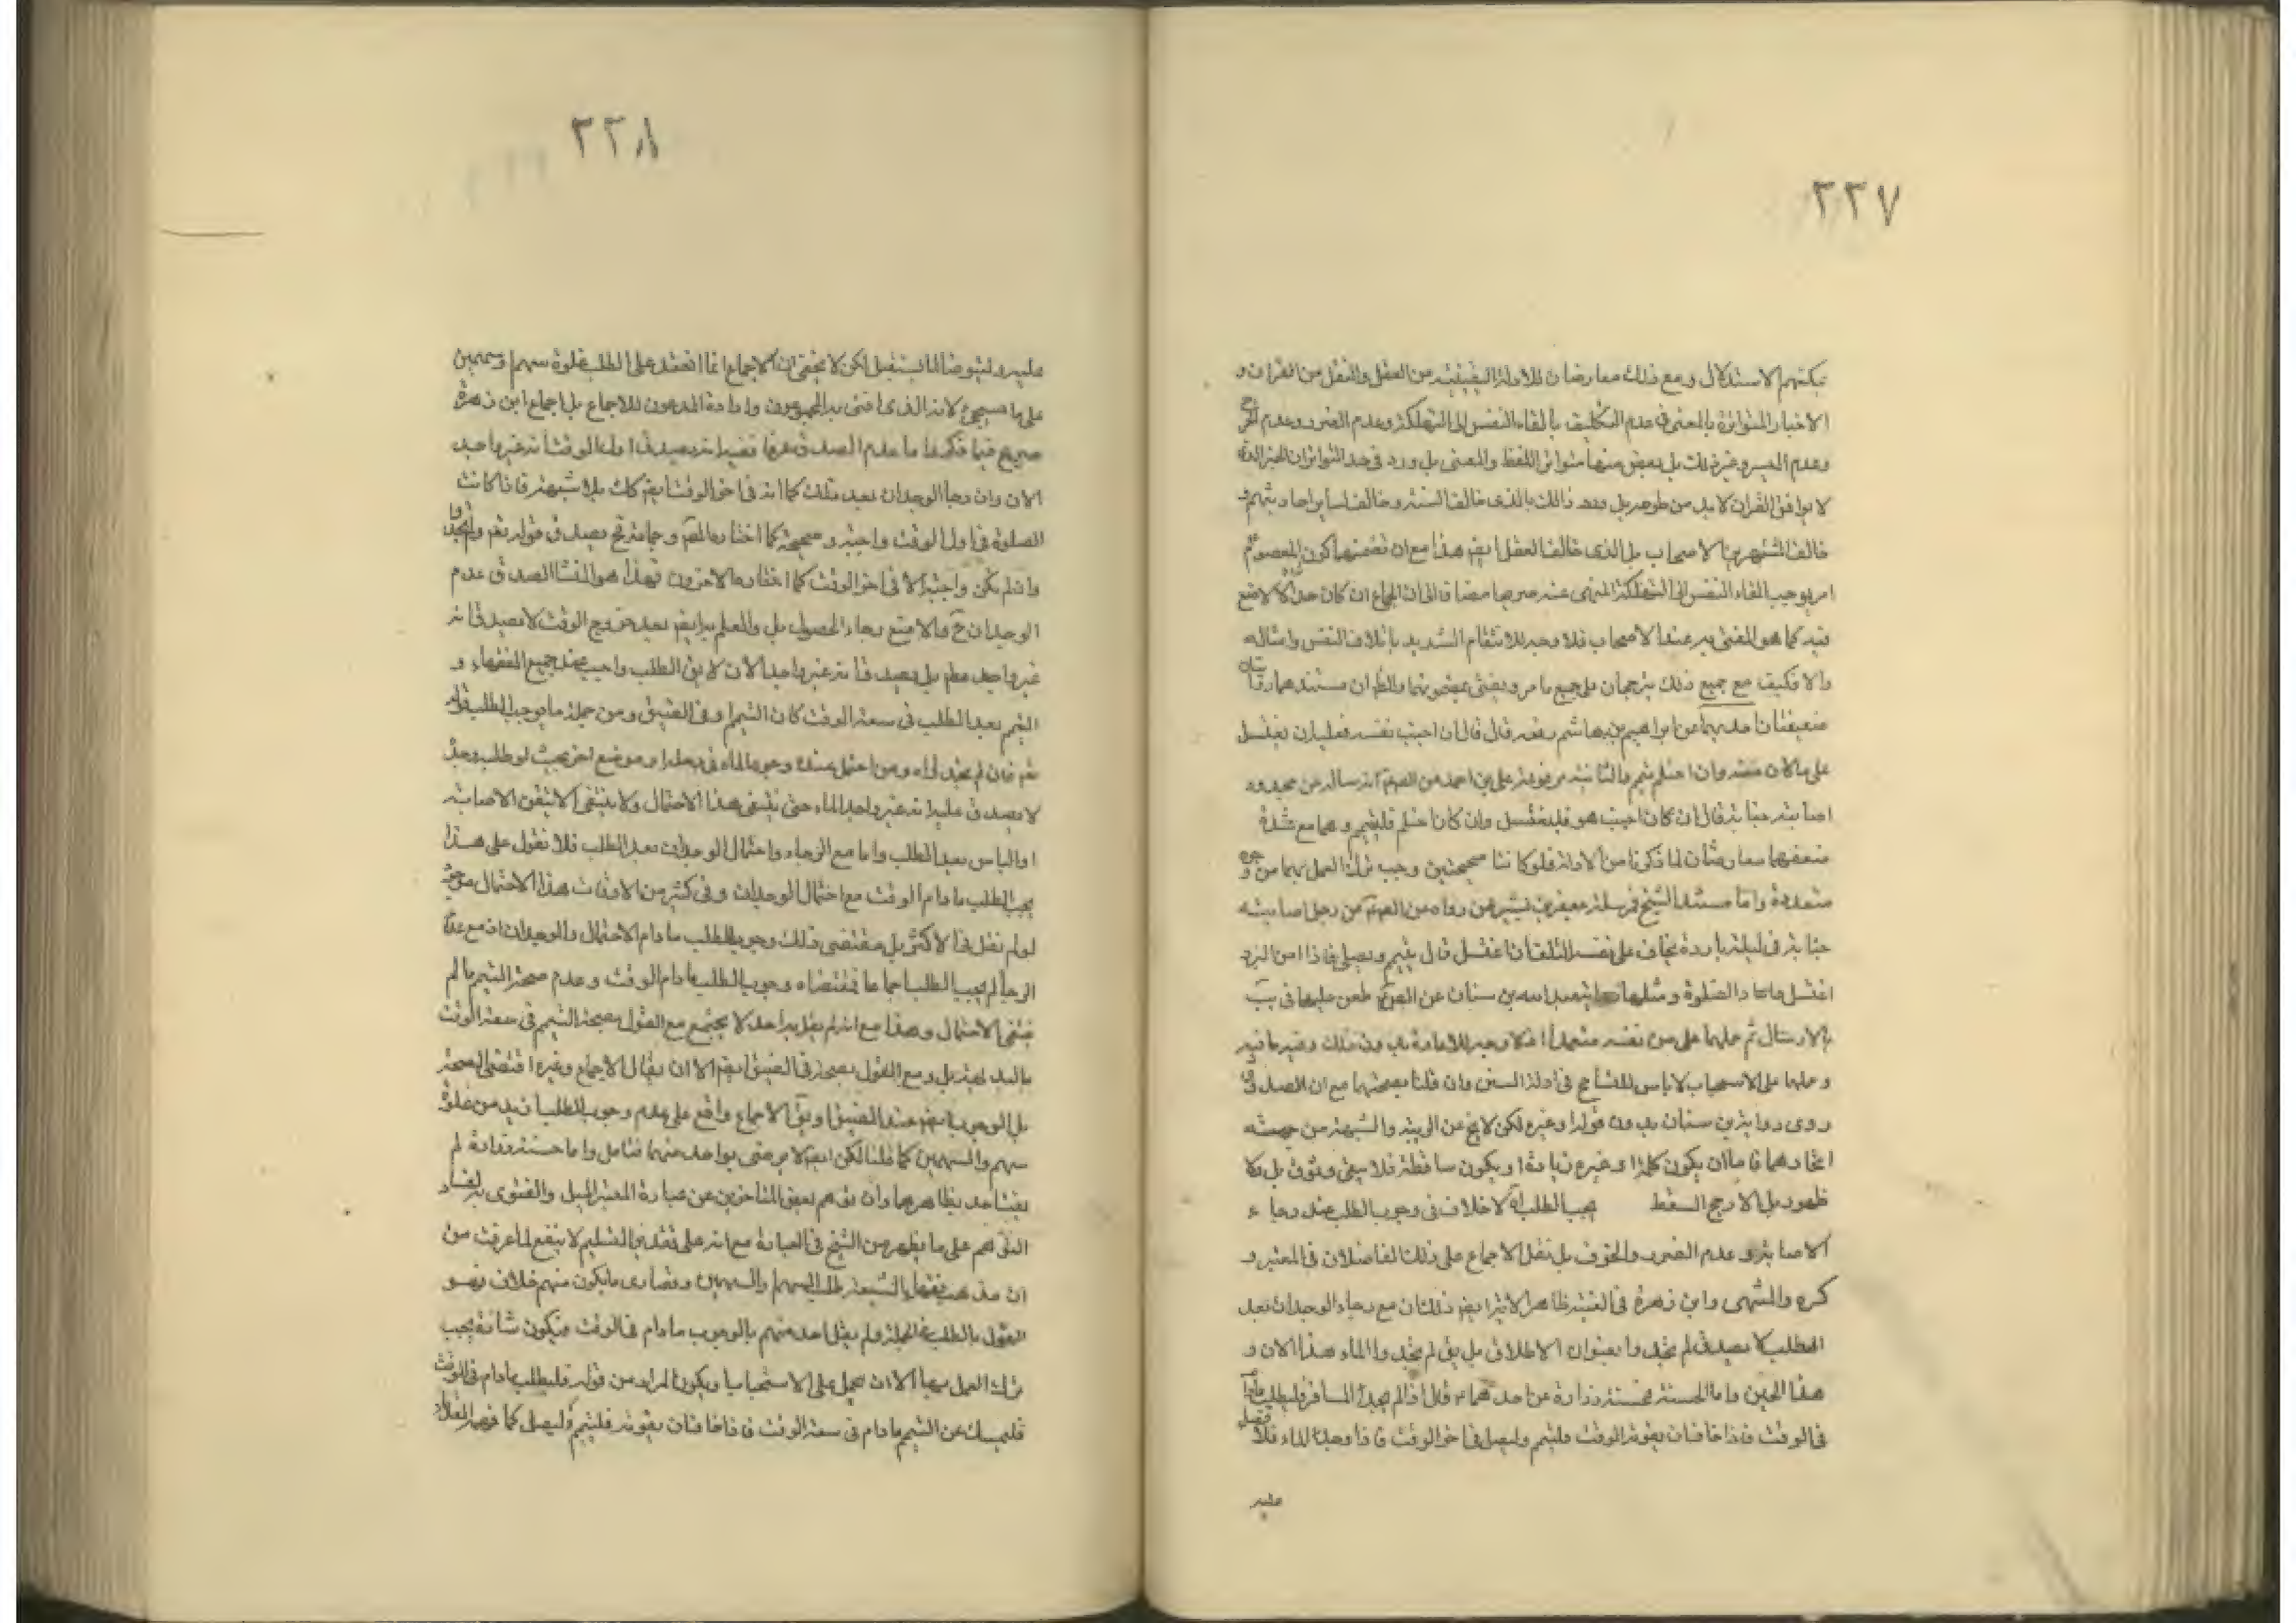 ٢٣٧
يمكنهم الاستدلال ومع ذلك معارضان للادلة اليقينية من العقل والنقل من القران و
الاخبار المتواترة بالمعنى في عدم التكليف بالقاء النفس الى التهلكة وعدم الضرر وعدم الحرج
وعدم العسر وغير ذلك بل بعض منها متواتر اللفظ والمعنى بل ورد في حد التواتر ان الخبر الذي
لا يوافق القران لابد من طرحه بل ورد ذلك بالذي خالف السنة وخالف لساير احاديثهم و
خالف المشتهر بين الاصحاب بل الذى خالف العقل ايضا هذا مع ان تضمنها كون المعصوم ع
امر يوجب القاء النفس الى التهلكة المنهى عنه صريحا مضافا الى ان الجماع ان كان حلالا لا منع
فيه كما هو المفتى به عند الاصحاب فلا وجه للانتقام الشديد باتلاف النفس وامثاله
والا فكيف مع جميع ذلك يترجحان على جميع ما مر ويفتى بمضمونهما والظ ان مستندهما روايتان
ضعيفتان احديهما عن ابراهيم بن هاشم رفعه قال قال ان اجنب نفسه فعليه ان يغتسل
على ما كان منه وان احتلم تيمم والثانية مرفوعة على بن احمد عن الصادق انه ساله عن مجدور
اصابته جنابة قال ان كان اجنب هو فليغتسل وان كان احتلم فليتيمم وهما مع شدة
ضعفهما معارضتان لما ذكرنا من الادلة فلو كانتا صحيحتين وجب ترك العمل بهما من وجوه
متعددة واما مستند الشيخ فمرسلة جعفر بن بشير عن رواه عن الصادق عن رجل اصابته
جنابة في ليلة باردة يخاف على نفسه التلف ان اغتسل قال يتيمم ويصلى فاذا امن البرد
اغتسل واعاد الصلوة ومثلها رواية عبد الله بن سنان عن الصادق طعن عليها في يب
بالارسال ثم حملها على من نفسه متعمدا اذ لا وجه للاعادة بدون ذلك وفيه ما فيه
وحملها على الاستحباب لا باس للتسامح في ادلة السنن وان قلنا بصحتهما مع ان الصدوق
روى رواية بن سنان بدون قوله او غيره لكن لا يخ عن الريبة والشبهة من جهة
اتحادهما فاما ان يكون كلمة او غيره زيادة او يكون ساقطة فلا يبقى وثوق بل ولا
ظهور بل الارجح السقط يجب الطلب اه لا خلاف في وجوب الطلب عند رجاء
الاصابة وعدم الضرر والخوف بل نقل الاجماع على ذلك الفاضلان في المعتبر و
كره والمنتهى وابن زهرة في الغنية ظاهر الاية ايضا ذلك ان مع رجاء الوجدان بعد
الطلب لا يصدق لم تجدوا بعنوان الاطلاق بل يق لم تجدوا الماء هذا الان و
هذا الحين واما السنة فحسنة زرارة عن احدهما ع قال اذا لم يجد المسافر فليطلب مادام
في الوقت فاذا خاف ان يفوته الوقت فليتيمم وليصل في اخر الوقت فاذا وجد الماء فلا قضاء
عليه
٢٣٨
عليه وليتوضا لما يستقبل لكن لا يخفى ان الاجماع انما انعقد على الطلب غلوة سهم او سهمين
على ما سيجئ لانه الذى افتى به المجمعون وارادة المدعون للاجماع بل اجماع ابن زهرة
صريح فيما ذكرنا واما عدم الصدق عرفا ففيه انه يصدق في اول الوقت انه غير واجد
الان وان رجا الوجدان بعد ذلك كما انه في اخر الوقت ايضا كك بلا شبهة فاذا كانت
الصلوة في اول الوقت واجبة وصحيحة كما اختاره المصنف وجماعة فح يصدق قوله تعم ولم تجدوا
وان لم تكن واجبة الا في اخر الوقت كما اختاره الاخرون فهذا هو المنشا لصدق عدم
الوجدان ح والا منع رجاء الحصول بل والعلم به ايضا بعد خروج الوقت لا يصدق انه
غير واجد مطم بل يصدق انه غير واجد الان لا يق الطلب واجب عند جميع الفقهاء و
التيمم بعد الطلب في سعة الوقت كان التيمم او في الضيق ومن جملة ما يوجب الطلب قوله
تعم فان لم تجدوا ماء ومن احتمل عنده وجود الماء في رحله او موضع اخر بحيث لو طلب وجد
لا يصدق عليه انه غير واجد الماء حتى ينتفى هذا الاحتمال ولا ينتفى الا بتيقن الاصابة
او الياس بعد الطلب واما مع الرجاء واحتمال الوجدان بعد الطلب فلا نقول على هذا
يجب الطلب ما دام الوقت مع احتمال الوجدان وفي كثير من الاوقات هذا الاحتمال موجود
لو لم نقل في الاكثر بل مقتضى ذلك وجوب الطلب ما دام الاحتمال والوجدان اذ مع عدم
الرجا لم يجب الطلب اجماعا فمقتضاه وجوب الطلب مادام الوقت وعدم صحة التيمم ما لم
ينتفى الاحتمال وهذا مع انه لم يقل به احد لا يجتمع مع القول بصحة التيمم في سعة الوقت
بالبديهة بل ومع القول بصحته في الضيق ايضا الا ان يقال الاجماع وغيره اقتضى الصحة
بل الوجوب ايضا عند الضيق او يق الاجماع واقع على عدم وجوب الطلب ازيد من غلوة
سهم والسهمين كما قلنا لكن ايضا لا يرضى بواحد منهما فتامل واما حسنة زرارة لم
يفت احد بظاهرها وان توهم بعض المتاخرين عن عبارة المعتبر الميل والفتوى به لفساد
التوهم على ما يظهر من الشيخ في العبارة مع انه على تقدير التسليم لا ينفع لما عرفت من
ان مذهب فقهاء الشيعة طلب السهم والسهمين وقصارى ما يكون منهم خلاف فهو
القول بالطلب في الجملة ولم يقل احد منهم بالوجوب ما دام في الوقت فيكون شاذة يجب
ترك العمل بها الا ان يحمل على الاستحباب او يكون المراد من قوله فليطلب مادام في الوقت
فليمسك عن التيمم ما دام في سعة الوقت فاذا خاف ان يفوته فليتيمم وليصلى كما فهمه